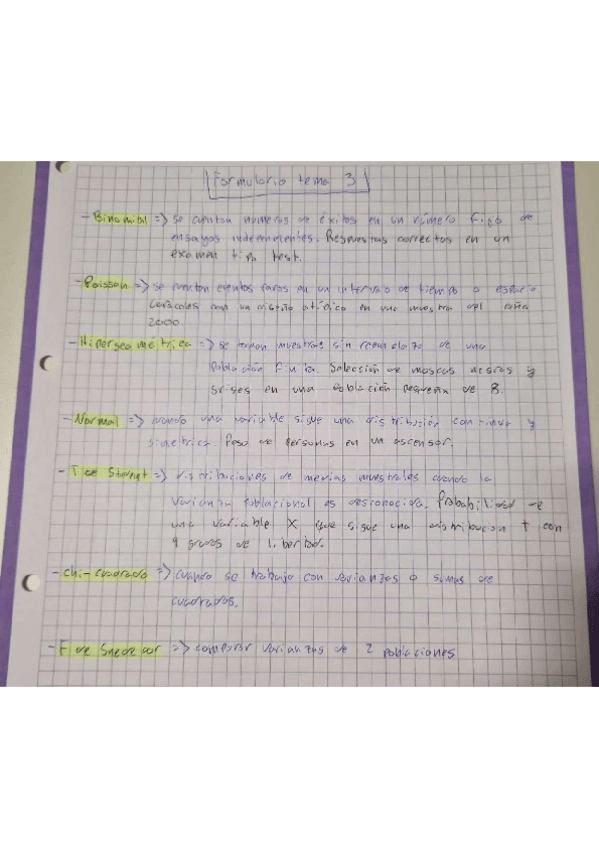 Formulario tema 3
- Binomial => se cuentan números de éxitos en un número fijo de
ensayos independientes. Respuestas correctas en un
examen tipo test.
- Poisson => se cuentan eventos raros en un intervalo de tiempo o espacio
caracoles con un diseño atípico en una muestra del
2000
- Hipergeometrica => se toman muestras sin reemplazo de una
población finita. Selección de moscas negras y
grises en una población pequeña de 8.
- Normal => cuando una variable sigue una distribución continua y
simetrica Peso de personas en un ascensor.
- T de Student => distribuciones de medias muestrales cuando la
varianza poblacional es desconocida. Probabilidad de
una variable X que sigue una distribucion T con
9 grados de libertad.
- chi-cuadrado => cuando se trabaja con varianzas o sumas de
cuadrados.
- F de Snedecor => comparar varianzas de 2 poblaciones